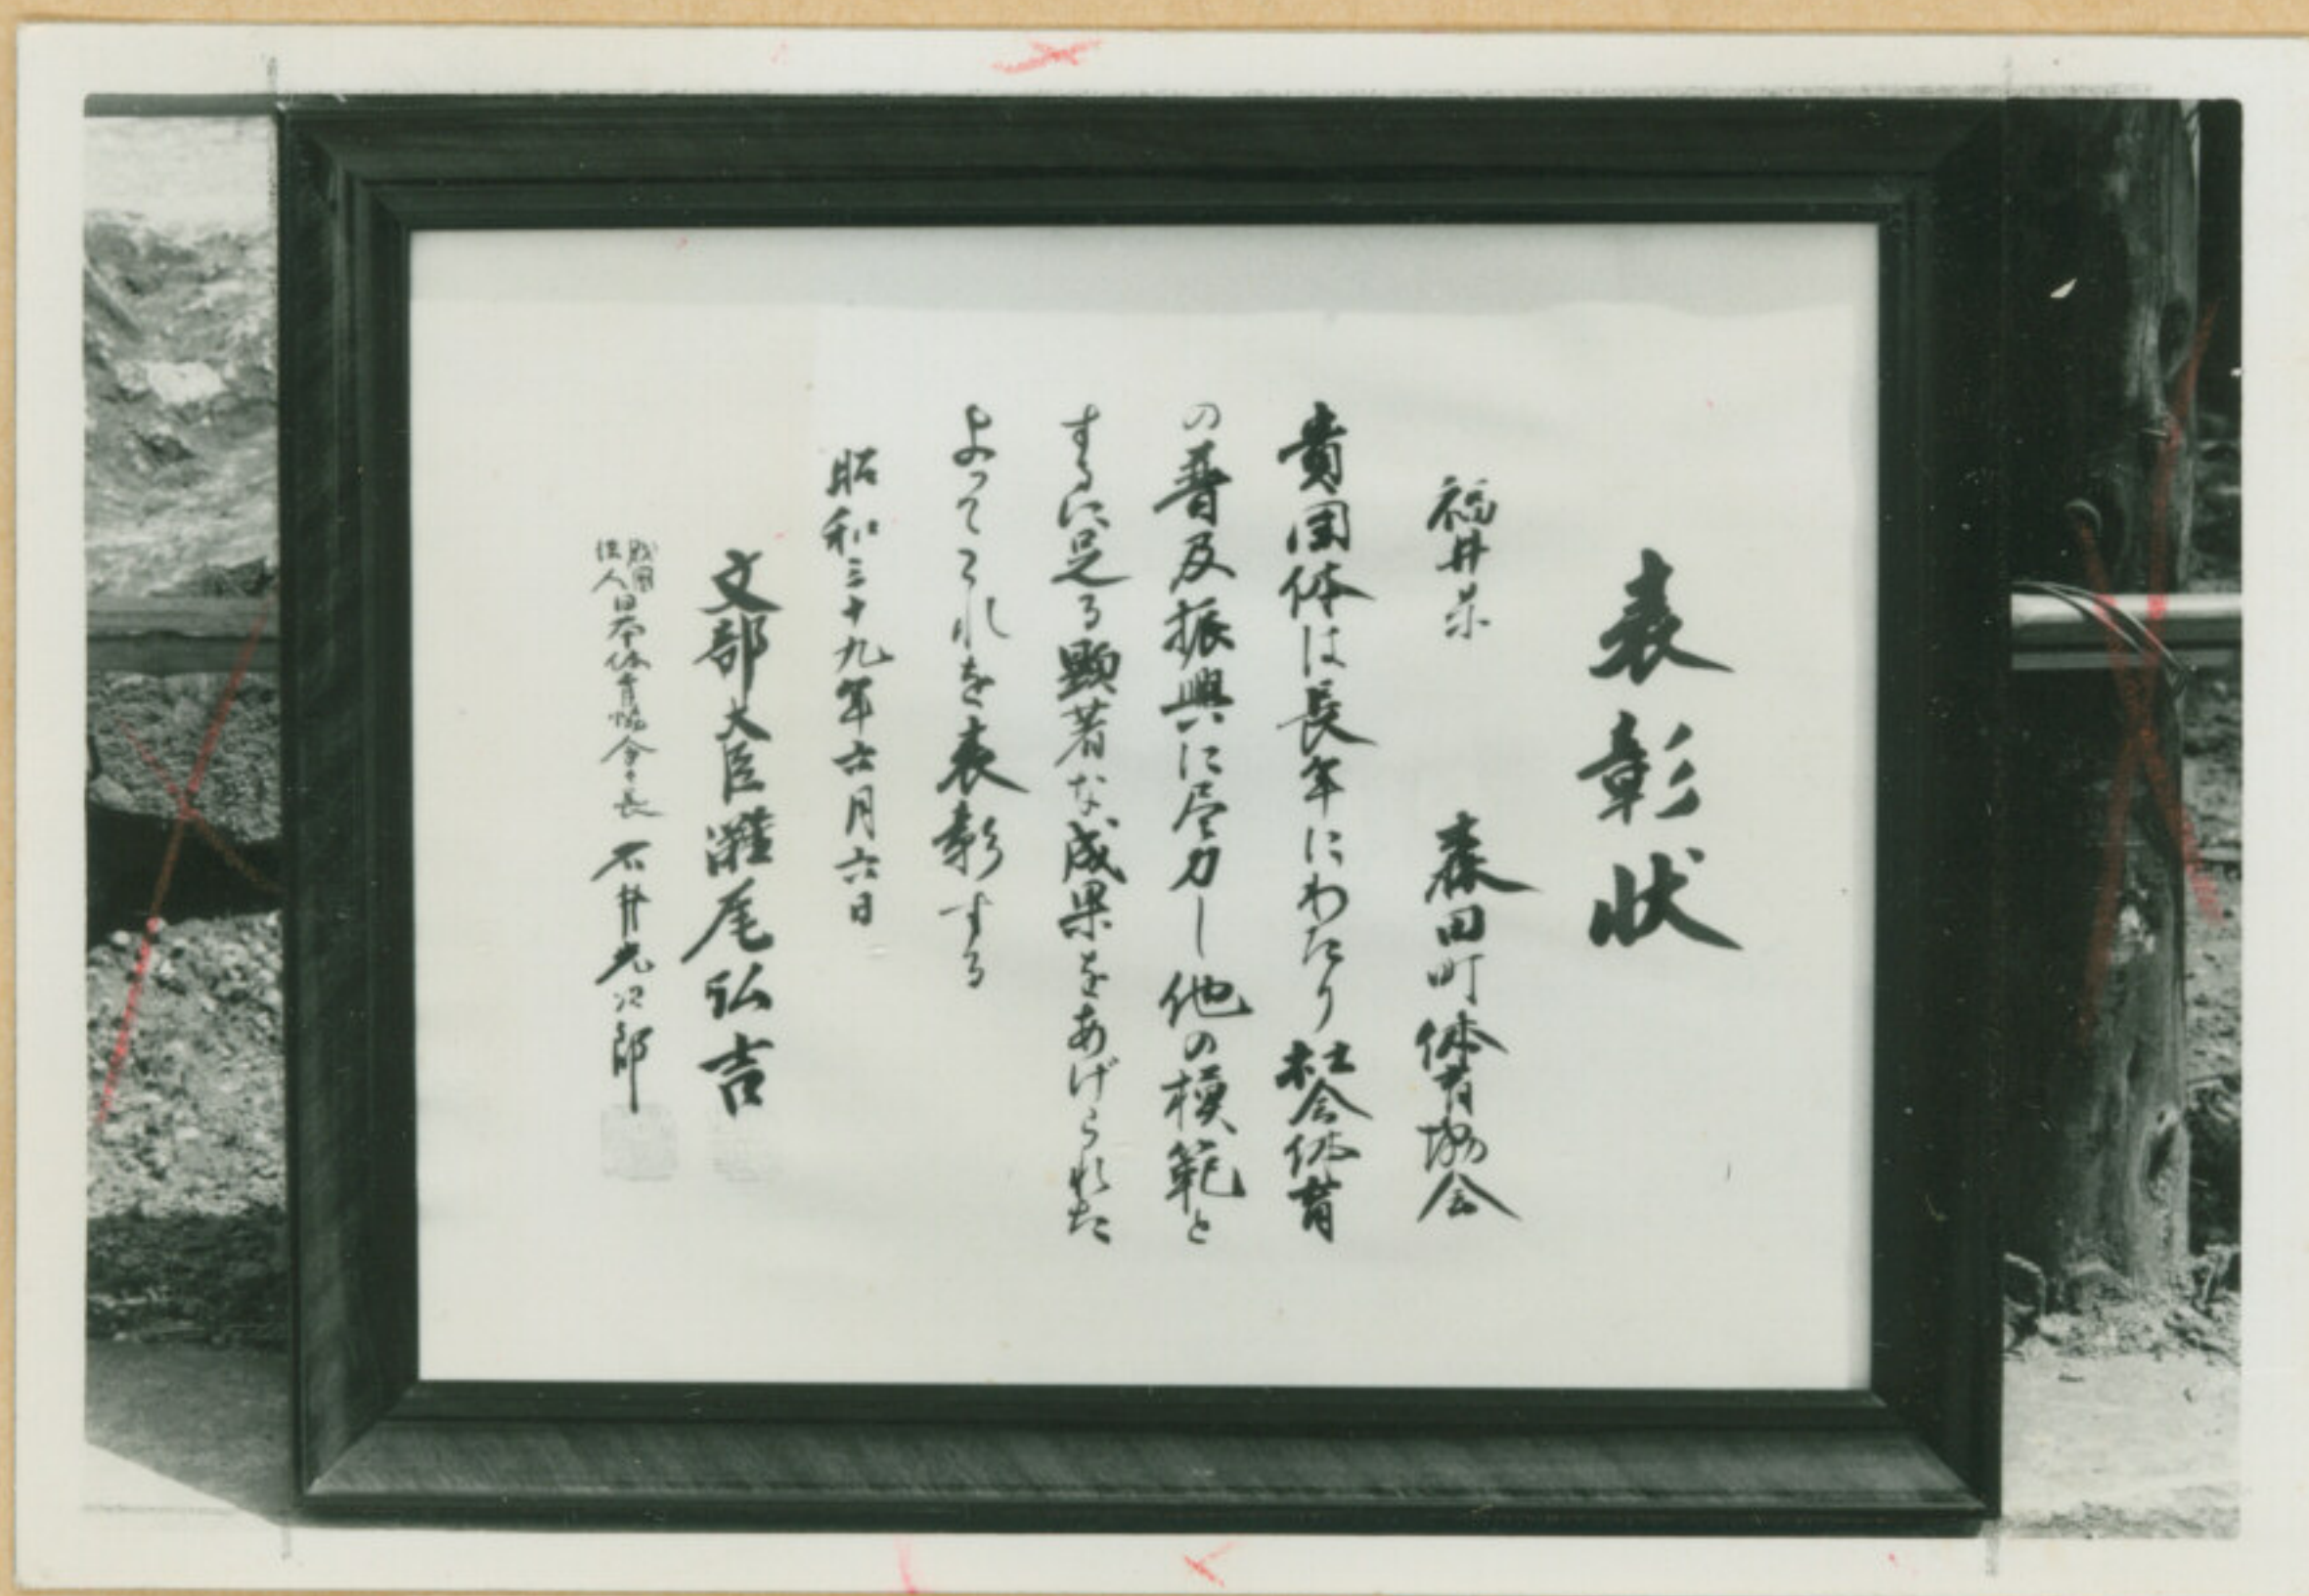 表彰状
福井県 森田町体育協会
貴団体は長年にわたり社会体育
の普及振興に尽力し他の模範と
するに足る顕著な成果をあげられた
よってこれを表彰する
昭和三十九年六月六日
文部大臣灘尾弘吉
財団法人日本体育協会々長 石井光次郎